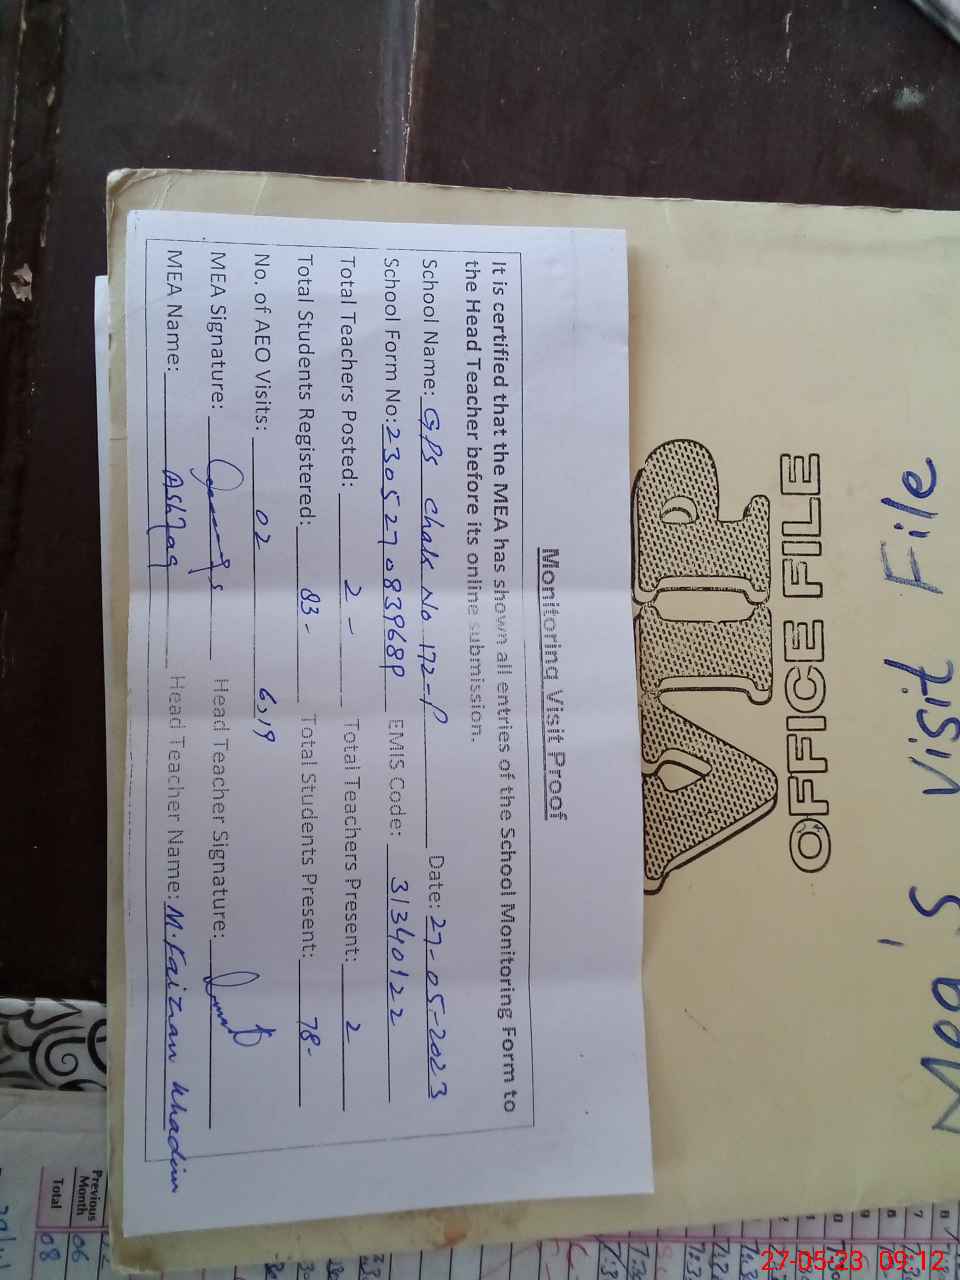 Monitoring Visit Proof
It is certified that the MEA has shown all entries of the School Monitoring Form to
the Head Teacher before its online submission.
School Name: GPS Chak No 172-P Date: 27-05-2023
School Form No: 230527083968P EMIS Code: 31340122
Total Teachers Posted: 2- Total Teachers Present: 2
Total Students Registered: 83- Total Students Present: 78-
No. of AEO Visits: 02
MEA Signature: Head Teacher Signature:
MEA Name: Ashfaq Head Teacher Name: M.Faizan Khadim
VIP
OFFICE FILE
Mon's visit File
Previous
Month
06
Total
08
27-05-23 09:12